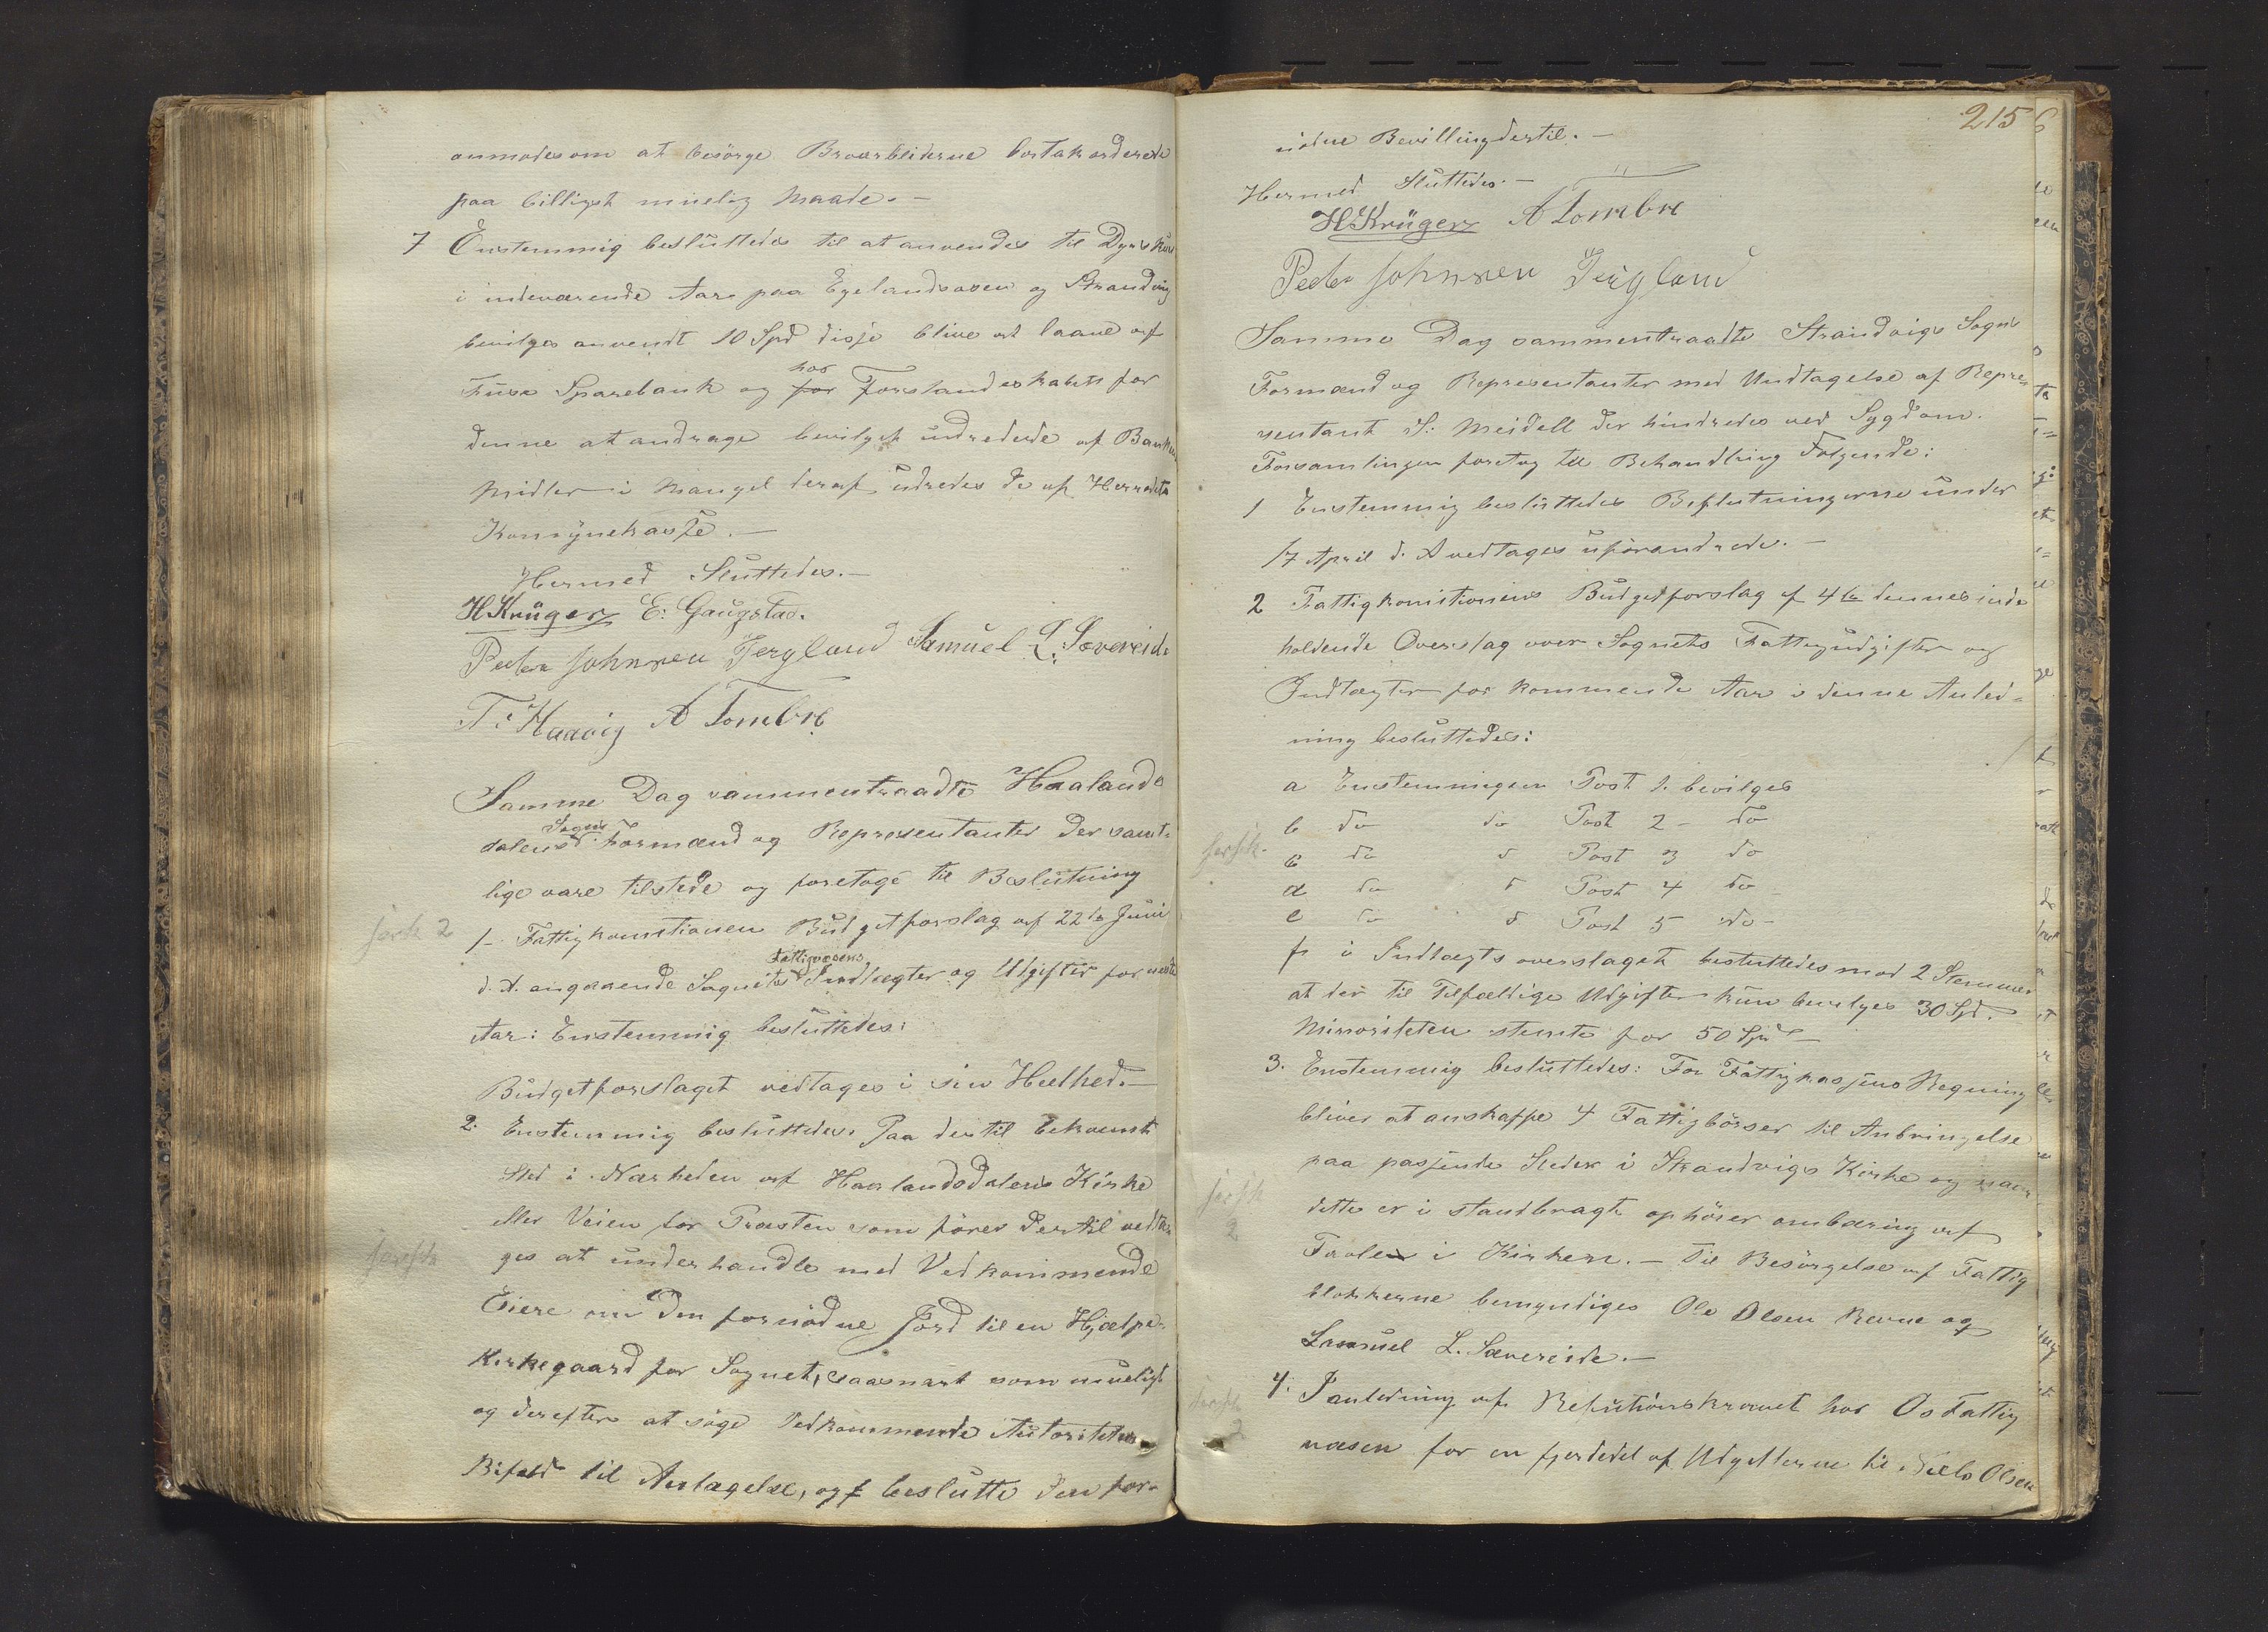 anmodes om at besörge Broarbeiderne bortakorderede
paa billigst muelig Maade. –
7 Enstemmig besluttedes til at anvendes til Dyrskue
i indeværende Aar paa Egelandsosen og Strandvig
bevilges anvendt 10 Spd disse blive at laane af
Fuse Sparebank og for hos Forstanderskabet for
denne at andrage bevilget udredede af Bankens
Midler i Mangel deraf udredes de af Herredets
Komynekasse. –
Hermed Sluttedes. –
H Krüger E: Gaugstad.
Peder Johnsen Tergland Samuel L. Sævereide
T: Haavig A Tombre
Samme Dag sammentraadte Haalands
dalens Sogns Formænd og Representanter der samt-
lige vare tilstede og foretoge til Beslutning
fork 2
1- Fattigkomitionen Budgetforslag af 22de Juni
d. A. angaaende Sognets Fattigvæsens Indtægter og Udgifter for næste
Aar: Enstemmig besluttedes:
Budgetforslaget vedtages i sin Heelhed. –
2. Enstemmig besluttedes. Paa dertil bekvemt
Sted i Nærheden af Haalandsdalens Kirke
eller Veien for Præsten som förer dertil vedta-
ges at underhandle med Vedkommende
Eiere om den fornödne Jord til en Hjælpe-
Kirkegaard for Sognet, saasnart som mueligt
og derefter at söge Vedkommende Autoriteters
Bifald til Antagelse, og beslutte den for-
215
nödne Bevilling dertil. –
Hermed Sluttedes. –
H Krüger A Tombre
Peder Johnsen Tergland
Samme Dag sammentraadte Strandvigs Sogns
Formænd og Representanter med Undtagelse af Repre-
sentant S: Meidell der hindredes ved Sygdom.
Forsamlingen foretog til Behandling Fölgende:
1 Enstemmig besluttedes Beslutningerne under
17 April d. A vedtages uforandrede. –
2 Fattigkomitionens Budgetforslag af 4de dennes inde
holdende Overslag over Sognets Fattigudgifter og
Indtægter for kommende Aar i denne Anled-
ning besluttedes:
a Enstemmigen Post 1. bevilges
b do do Post 2 – do
c do d Post 3 do
d do d Post 4 do
e do d Post 5 do –
f i Indtægts overslaget besluttedes mod 2 Stemmer
at der til Tilfældige Udgifter kun bevilges 30 Spd.
Minoriteten stemte for 50 Spd –
3. Enstemmig besluttedes: For Fattigkassens Regning
bliver at anskaffe 4 Fattigbörser til Anbringelse
paa passende Steder i Strandvigs Kirke og naar
dette er i standbragt ophörer ombæring af
Tavlen i Kirken. – Til Besörgelse af Fattig
blokkerne bemyndiges Ole Olsen Revne og
Samuel L. Sævereide. –
4. I anledning af Refutionskravet hos Os Fattig
væsen for en fjerdedel af Udgifterne til Olsen